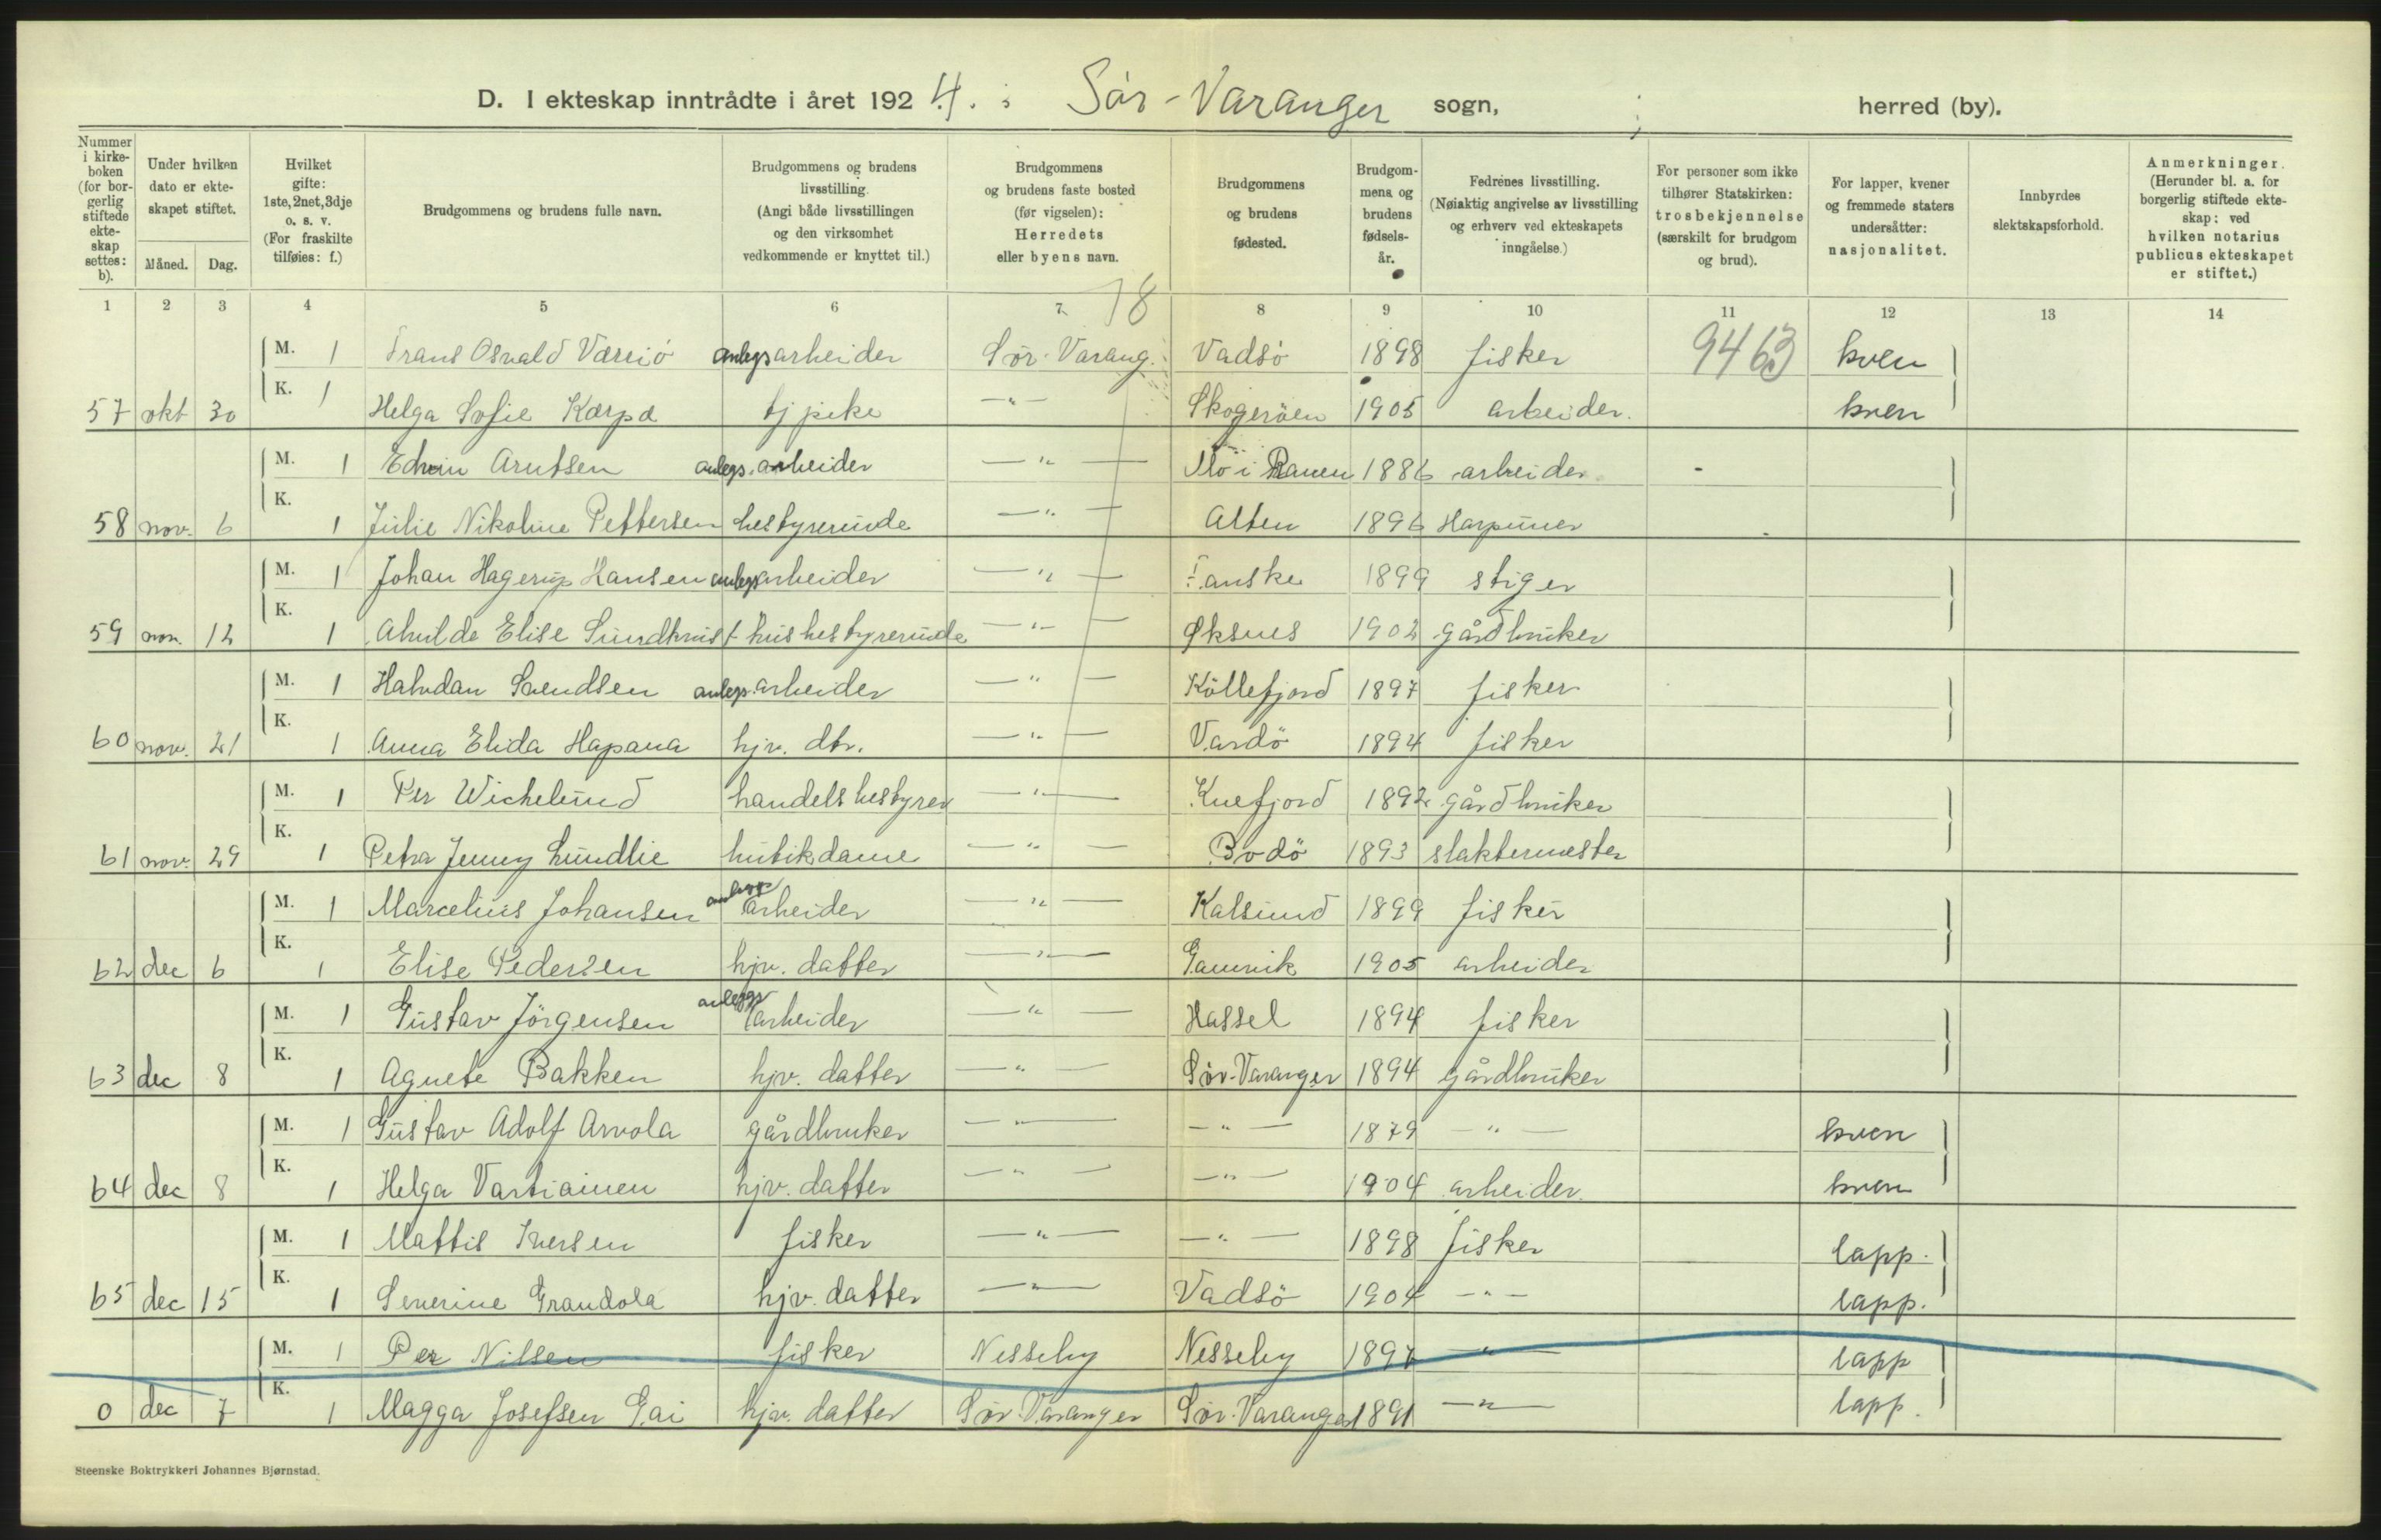 D. I ekteskap inntrådte i året 1924. i Sør-Varanger sogn, herred (by).
Nummer i kirkeboken (for borgerlig stiftede ekteskap settes: b).
Under hvilken dato er ekteskapet stiftet.
Måned. Dag.
Hvilket gifte: 1ste, 2net, 3dje o. s. v. (For fraskilte tilføies: f.)
Brudgommens og brudens fulle navn.
Brudgommens og brudens livsstilling. (Angi både livsstillingen og den virksomhet vedkommende er knyttet til.)
Brudgommens og brudens faste bosted (før vigselen): Herredets eller byens navn.
Brudgommens og brudens fødested.
Brudgommens og brudens fødselsår.
Fedrenes livsstilling. (Nøiaktig angivelse av livsstilling og erhverv ved ekteskapets inngåelse.)
For personer som ikke tilhører Statskirken: trosbekjennelse (særskilt for brudgom og brud).
For lapper, kvener og fremmede staters undersåtter: nasjonalitet.
Innbyrdes slektskapsforhold.
Anmerkninger. (Herunder bl. a. for borgerlig stiftede ekteskap: ved hvilken notarius publicus ekteskapet er stiftet.)
1 2 3 4 5 6 7 8 9 10 11 12 13 14
18
M. 1 Frans Osvald anlegsarbeider Sør-Varang. Vadsö 1898 fisker 9463 kven
57 okt 30 K. 1 Helga Sofie Karpa tj pike —"— Skogeröen 1905 arbeider. kven
M. 1 Edvin Arntsen anlegs.arbeider —"— Mo i Ranen 1886 arbeider -
58 nov. 6 K. 1 Julie Nikoline Pettersen bestyrerinde —"— Alten 1896 Harpuner
M. 1 Johan Hagerup Hansen anlegsarbeider —"— Fauske 1899 stiger
59 nov. 12 K. 1 Elise husbestyrerinde —"— Øksnes 1902 gårdbruker
M. 1 Halvdan Svendsen anlegs.arbeider —"— Köllefjord 1897 fisker
60 nov. 21 K. 1 Anna Elida Hapana hjv. dtr. —"— Vardö 1894 fisker
M. 1 Per Wichelund handelsbestyrer —"— Kvefjord 1892 gårdbruker
61 nov. 29 K. 1 Petra Jenny Lundlie butikdame —"— Bodö 1893 slaktermester
M. 1 Marcelius Johansen anlegsarbeider —"— Kalsund 1899 fisker
62 dec 6 K. 1 Elise Pedersen hjv. datter —"— Gamvik 1905 arbeider
M. 1 Gustav Jörgensen anleggsarbeider —"— Hassel 1894 fisker
63 dec 8 K. 1 Agnete Bakken hjv. datter —"— Sör-Varanger 1894 gårdbruker
M. 1 Gustav Adolf Arvola gårdbruker —"— —"— 1879 —"— kven
64 dec 8 K. 1 Helga Vartiainen hjv. datter —"— —"— 1904 arbeider. kven
M. 1 Mattis Iversen fisker —"— —"— 1898 fisker lapp.
65 dec 15 K. 1 Severine Grandola hjv. datter —"— Vadsö 1904 —"— lapp.
M. 1 Per Nilsen fisker Nesseby Nesseby 1897 —"— lapp
0 dec 7 K. 1 Magga Josefsen Gai hjv. datter Sör-Varanger Sör-Varanger 1891 —"— lapp.
Steenske Boktrykkeri Johannes Bjørnstad.